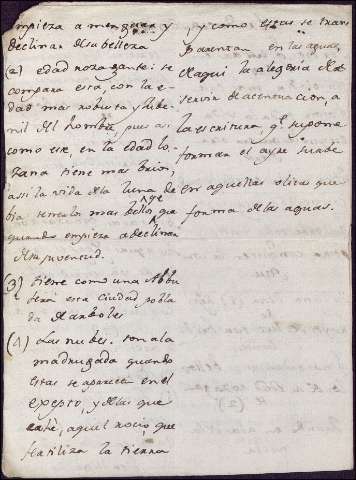 empieza a menguar y
declinar de su belleza
(2) edad nozagante: se
compara esta, con la e-
dad mas robusta y
del hombre, pues asi
como este, en la edad lo-
zana tiene mas brio,
assi la vida de la luna de
bia tenerlos mas bellos que
quando empieza a declinar
de su juventud.
(3) tiene como una Abbu
esta ciudad pobla
da de arboles
(4) Las nubes. son a la
madrugada quando
estas se aparecen en el
y de las que
cahe, aquel rocio, que
fertiliza la tierra
, y como estas se trans
parentan en las aguas,
de aqui la alegoria de
servir de acentuacion, a
la escritura, qe supone
forman el ayre suabe
en aquellas olitas que
forma de las aguas.